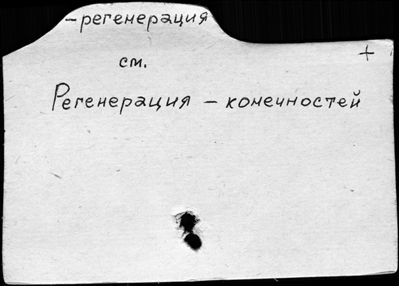 -регенерация
+
см.
Регенерация - конечностей